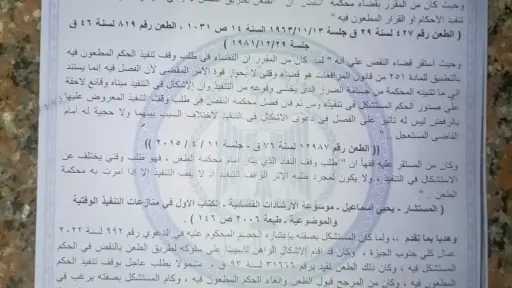 وحيث كان من المقرر بقضاء محكمة النقض أن " النقض
تنفيذ الأحكام أو القرار المطعون فيه "
( الطعن رقم ٤٢٧ لسنة ٢٩ ق جلسة ١٩٦٣/١١/١٣ لسنة ١٤ ص ١٠٣١ ، الطعن رقم ٨١٩ لسنة ٤٦ ق
جلسة ١٩٨١/١٢/٢٩ )
وحيث استقر قضاء النقض على أنه " لما كان من المقرر أن القضاء في طلب وقف تنفيذ الحكم المطعون فيه
بالتطبيق للمادة ٢٥١ من قانون المرافعات هو قضاء وقتي لا يحوز قوة الأمر المقضي لأن الفصل فيه إنما يستند
إلى ما تتبينه المحكمة من جسامة الضرر الذي يخشى وقوعه من التنفيذ وأن الإشكال في التنفيذ مبناه وقائع لاحقة
على صدور الحكم المستشكل في تنفيذه ومن ثم فإن فصل محكمة النقض في طلب وقف التنفيذ المعروض عليها
بالرفض ليس له تأثير على الفصل في دعوى الإشكال في التنفيذ لاختلاف السبب بينهما ولا حجية له أمام
القاضي المستعجل "
( الطعن رقم ١٥٩٨٧ لسنة ٧٦ ق - جلسة ١١ / ٤ / ٢٠١٥ )
وكان من المستقر عليه فقها أن " طلب وقف النفاذ الذي يتم أمام محكمة الطعن ، فهو طلب وقتي يختلف عن
الاستشكال في التنفيذ ، ولا يكون لمجرد طلبه الأثر الواقف للتنفيذ إذ لا يقف التنفيذ إلا إذا أمرت به محكمة
الطعن "
( المستشار - يحيى إسماعيل - موسوعة الإرشادات القضائية - الكتاب الأول في منازعات التنفيذ الوقتية
والموضوعية - طبعة ٢٠٠٦ ص ١٤٦ )
وهديا بما تقدم ،، ولما كان المستشكل بصفته باعتباره الخصم المحكوم عليه في الدعوى رقم ٩٩٢ لسنة ٢٠٢٢
عمال كلي جنوب الجيزة ، وكان قد أقام الإشكال الراهن تأسيسا على سلوكه لطريق الطعن بالنقض في الحكم
المستشكل فيه ، وكان ذلك الطعن قيد برقم ٣١٦٦٦ لسنة ٩٣ ق ، مشمولا بطلب عاجل بوقف تنفيذ الحكم
المستشكل فيه ، وكان من المرجح قبول الطعن وإلغاء الحكم المطعون فيه ، وكان المستشكل بصفته يرغب في